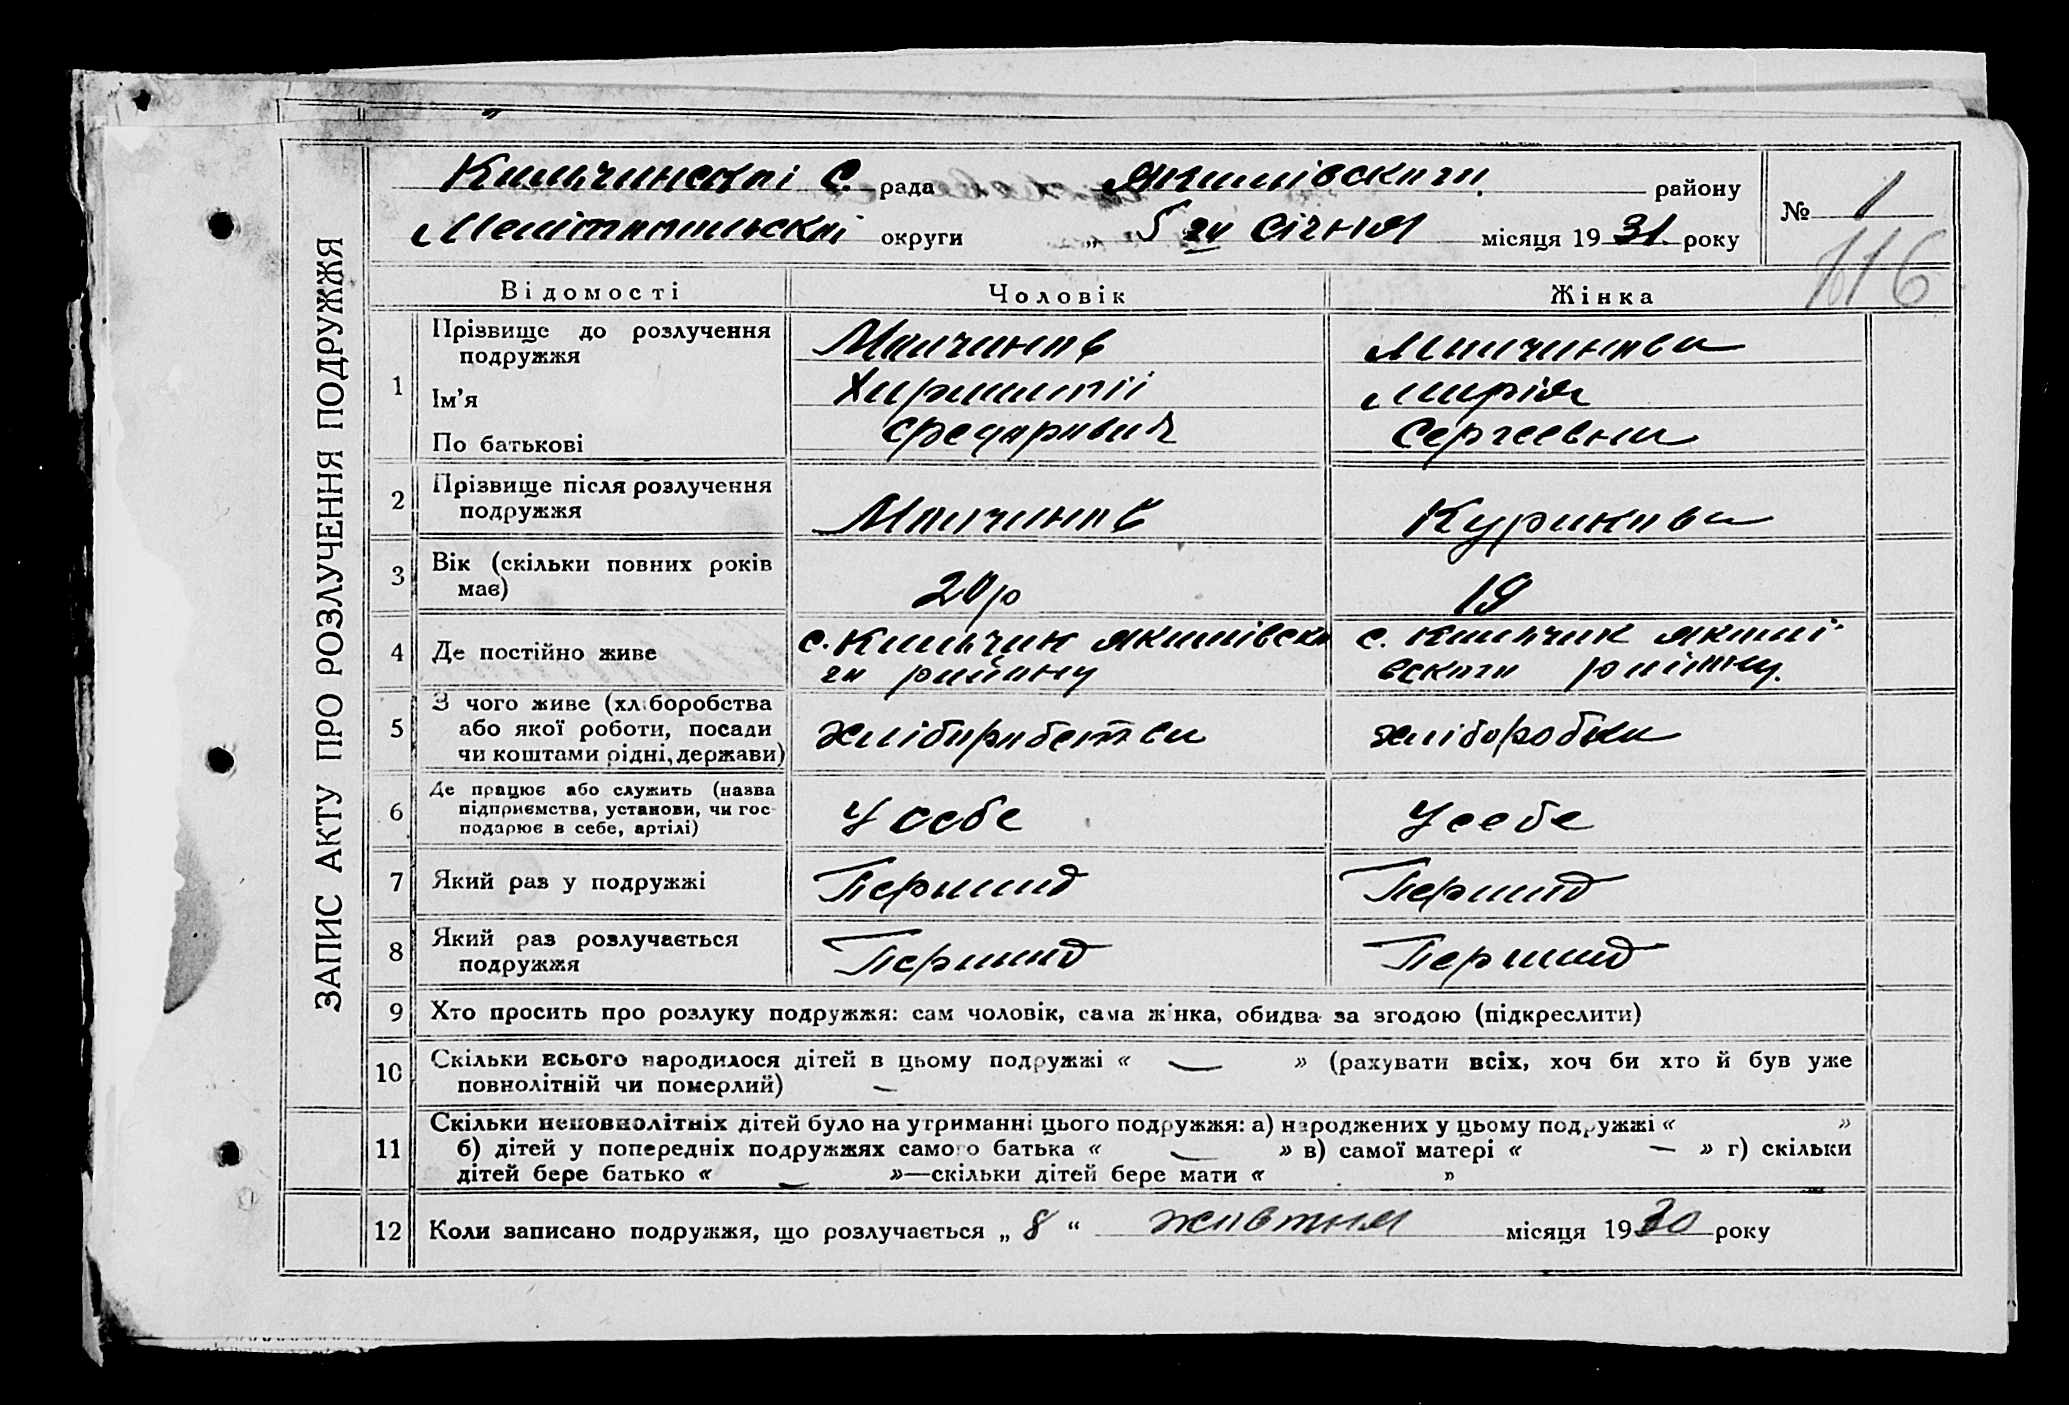 ЗАПИС АКТУ ПРО РОЗЛУЧЕННЯ ПОДРУЖЖЯ
С. рада Якимівского району
Мелітопильскої округи „ 5го Січня місяця 1931 року
№ 1
116
Відомості Чоловік Жінка
1 Прізвище до розлучення подружжя
Ім’я Марія
По батькові Федорович Сергеевна
2 Прізвище після розлучення
подружжя
3 Вік (скільки повних років
має) 20р 19
4 Де постійно живе с. Кильчик Якимівско с. Кильчик Якимі-
го району вского району.
5 З чого живе (хліборобства
або якої роботи, посади хліборобства хліборобка
чи коштами рідні, держави)
6 Де працює або служить (назва
підприємства, установи, чи гос- У себе У себе
подарює в себе, артілі)
7 Який раз у подружжі Перший Перший
8 Який раз розлучається
подружжя Перший Перший
9 Хто просить про розлуку подружжя: сам чоловік, сама жінка, обидва за згодою (підкреслити)
10 Скільки всього народилося дітей в цьому подружжі « — » (рахувати всіх, хоч би хто й був уже
повнолітній чи померлий) —
11 Скільки неповнолітніх дітей було на утриманні цього подружжя: а) народжених у цьому подружжі « »
б) дітей у попередніх подружжях самого батька « — » в) самої матері « — » г) скільки
дітей бере батько « — »—скільки дітей бере мати « »
12 Коли записано подружжя, що розлучається „ 8 “ жовтня місяця 1930 року